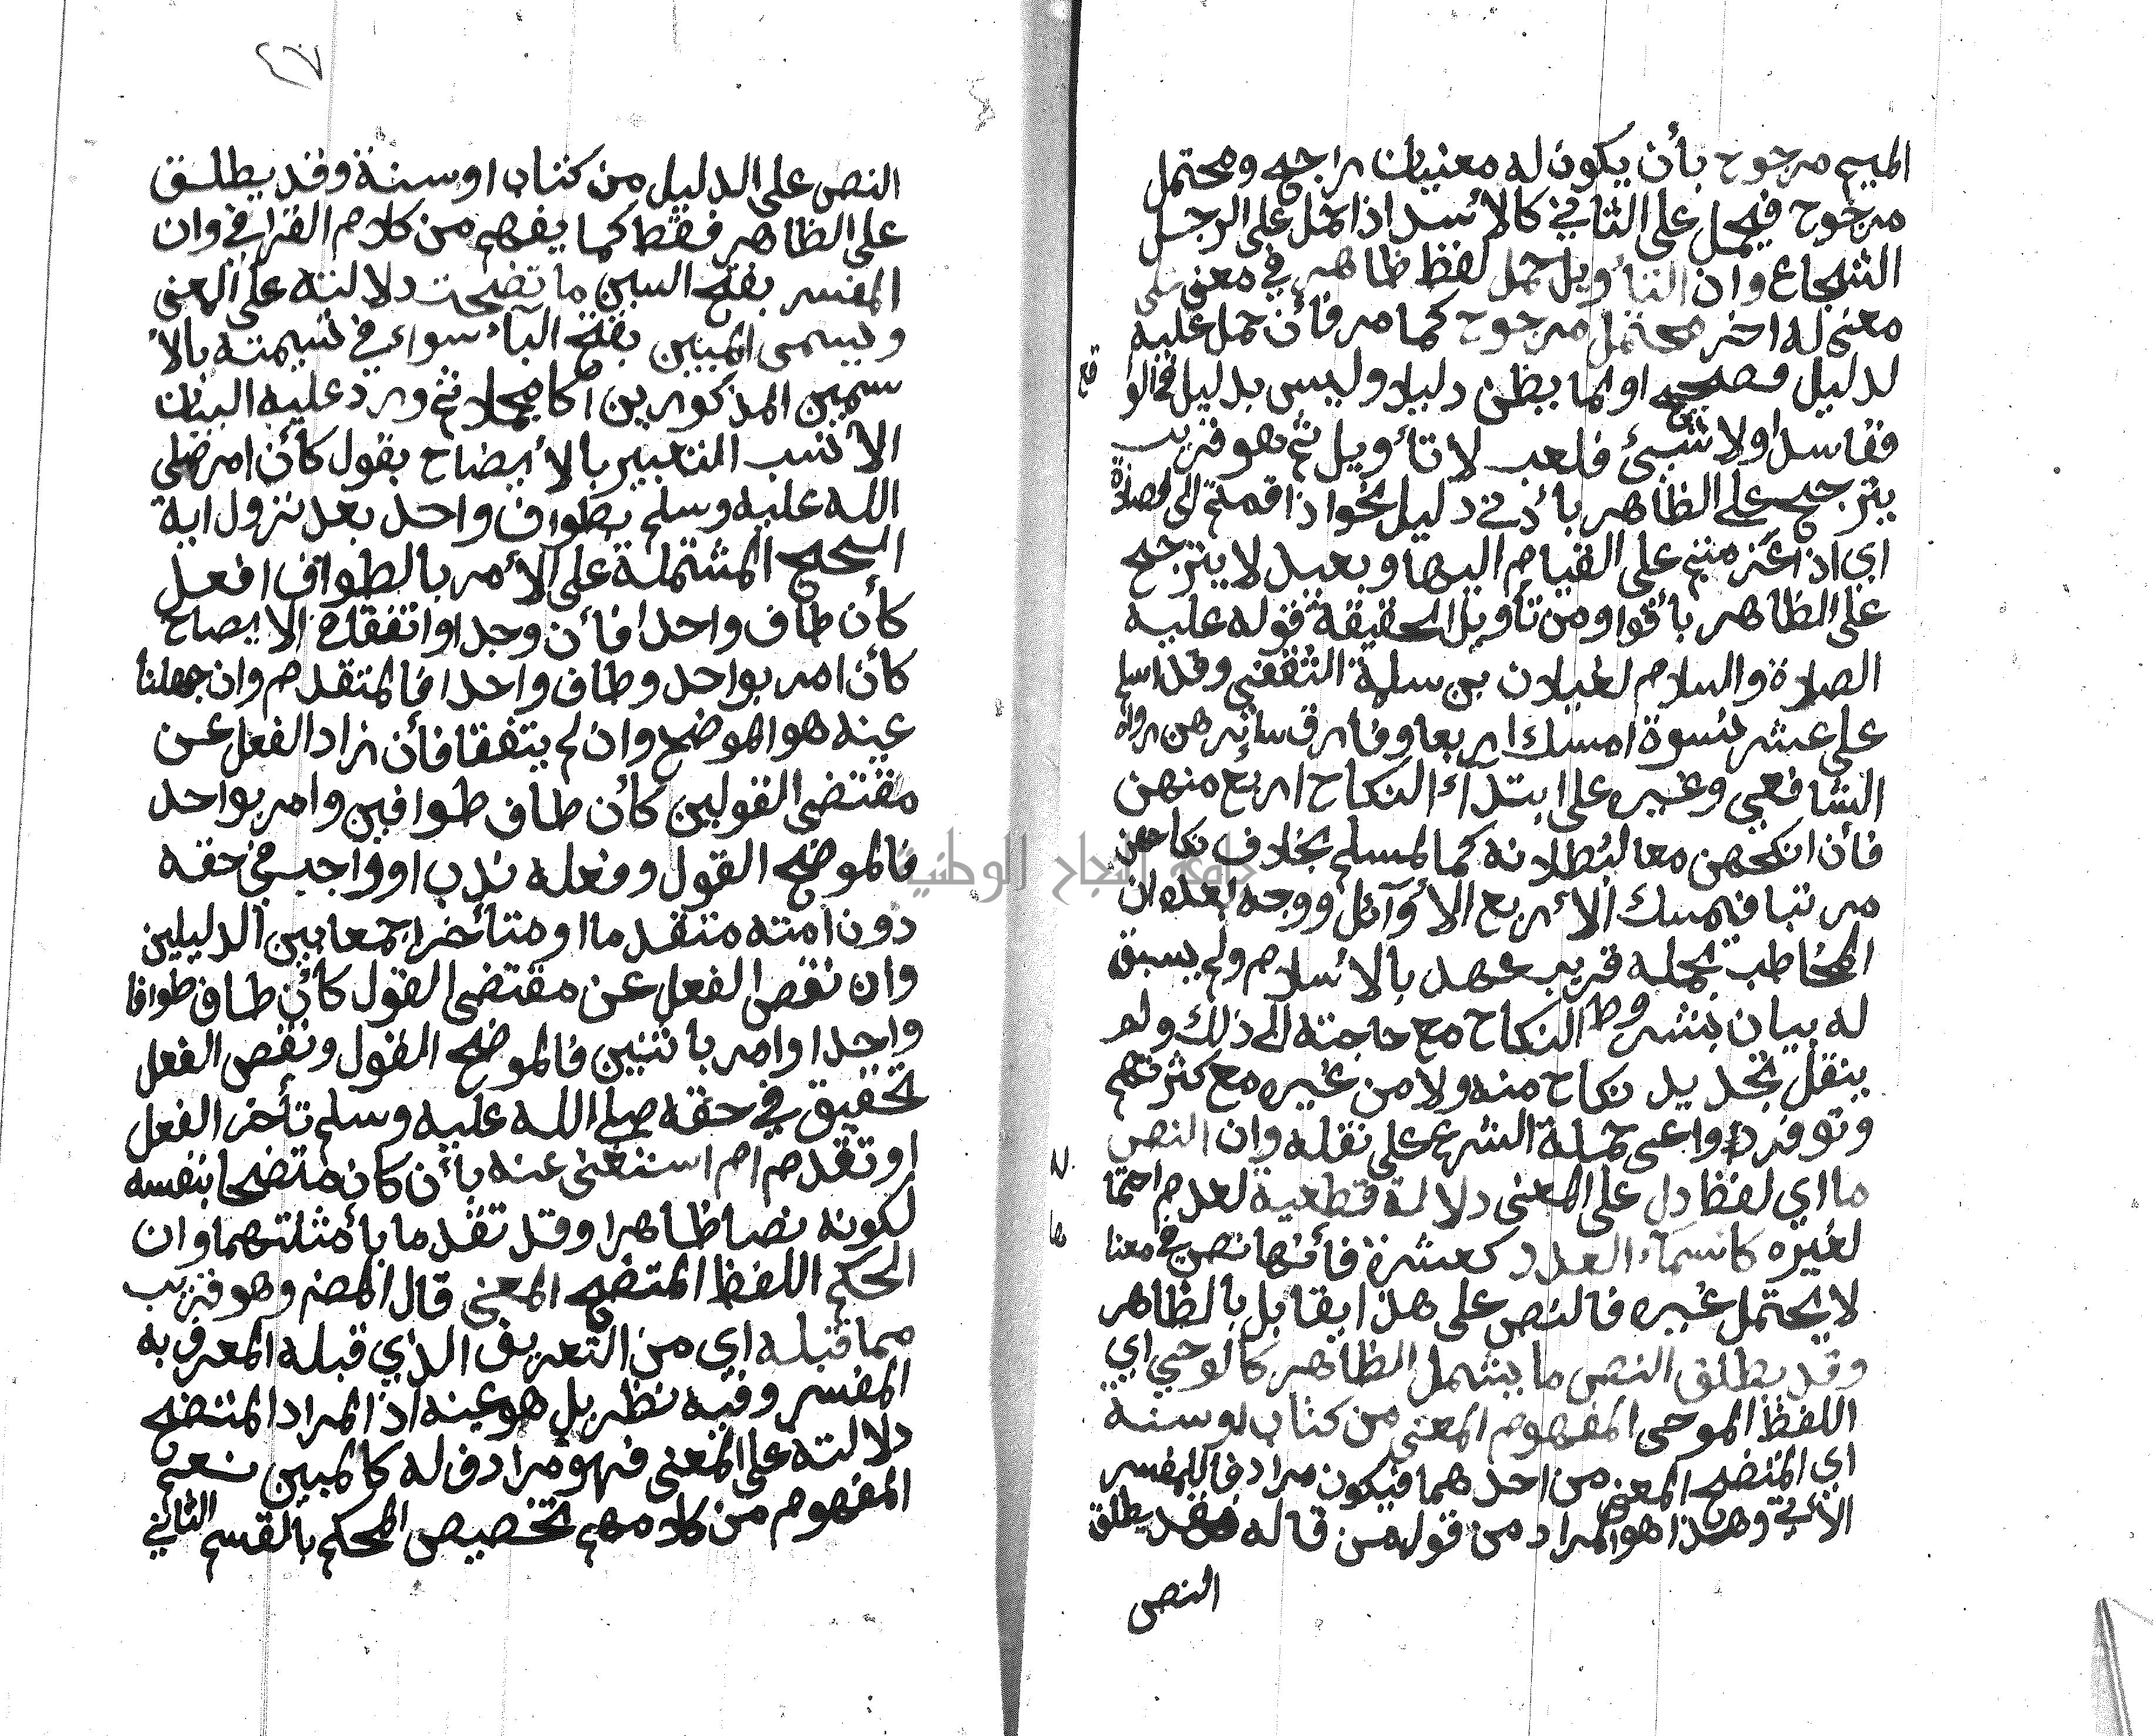 الميم مرجوح بأن يكون له معنيان راجح ومحتمل
مرجوح فيحمل على الثاني كالأسد اذا حمل على الرجل
الشجاع وان التأويل حمل لفظ ظاهر في معنى على
معنى له اخر محتمل مرجوح كما مر فأن حمل عليه
لدليل فصحيح او لما يظن دليلا وليس بدليل في الوا
قع
ففاسد او لا شيئ فلعب لا تأويل ثم هو قريب
يترجح على الظاهر بأدنى دليل نحو اذا قمتم الى الصلاة
اي اذا عزمتم على القيام اليها وبعيد لا يترجح
على الظاهر بأقوا ومن تأويل الحقيقة قوله عليه
الصلاة والسلام لغيلان بن سلمة الثقفي وقد اسلم
على عشر نسوة امسك اربعا وفارق سائرهن رواه
الشافعي وغيره على ابتداء النكاح اربع منهن
فأن انكحهن معا لبطلانه كما لمسلم بخلاف نكاحهن
مرتبا فيمسك الأربع الأوآئل ووجه بعده ان
المخاطب بمحله قريب عهد بالأسلام ولم يسبق
له بيان بشروط النكاح مع حاجته الى ذلك ولم
ينقل تجديد نكاح منه ولا من غيره مع كثرتهم
وتوفر دواعي حملة الشرع على نقله وان النص
ما اي لفظ دل على المعنى دلالة قطعية لعدم احتما
لغيره كاسمآء العدد كعشرة فأنها نص في معنا
ها
لا يحتمل غيره فالنص على هذا يقابل بالظاهر
وقد يطلق النص ما يشمل الظاهر كالوحي اي
اللفظ الموحى المفهوم المعنى من كتاب او سنة
اي المتضح المعنى من احدهما فيكون مرادفا للمفسر
الأتي وهذا هو المراد من قول من قاله قد يطلق
النص
٤٧
النص على الدليل من كتاب او سنة وقد يطلق
على الظاهر فقط كما يفهم من كلام القرافي وان
المفسر بفتح السين ما تضحت دلالته على المعنى
ويسمى المبين بفتح البآء سواء في تسيمته بالأ
سمين المذكورين اكان مجملا ثم ورد عليه البيان
الأنسب التعبير بالأيضاح بقول كأن امر صلى
الله عليه وسلم بطواف واحد بعد نزول اية
الحج المشتملة على الأمر بالطواف او فعل
كأن طاف واحدا فأن وجدا واتفقا في الايضاح
كأن امر بواحد وطاف واحدا فالمتقدم وان جهلنا
عينه هو الموضح وان لم يتفقا فأن زاد الفعل عن
مقتضى القولين كأن طاف طوافين وامر بواحد
فالموضح القول وفعله ندب او واجب في حقه
دون امته متقدما او متأخرا جمعا بين الدليلين
وان نقص الفعل عن مقتضى القول كأن طاف طوافا
واحدا وامر باثنين فالموضح القول ونقص الفعل
تخفيف في حقه صلى الله عليه وسلم تأخر الفعل
او تقدم ام استغنى عنه بأن كان متضحا بنفسه
لكونه نصا ظاهرا وقد تقدما بأمثلتهما وان
المحكم اللفظ المتضح المعنى قال المصنم وهو قريب
مما قبله اي من التعريف الذي قبله المعرف به
المفسر وفيه نظر بل هو عينه اذ المراد المتضح
دلالته على المعنى فهو مرادف له كالمبين نعم
المفهوم من كلامهم تخصيص المحكم بالقسم الثاني
جامعة النجاح الوطنية